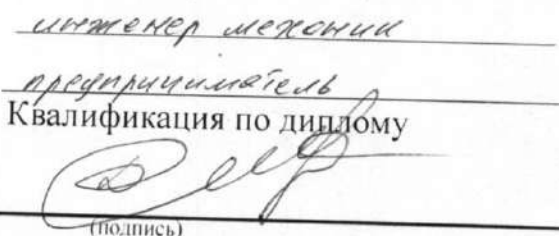 инженер механик
предприниматель
Квалификация по диплому
(подпись)